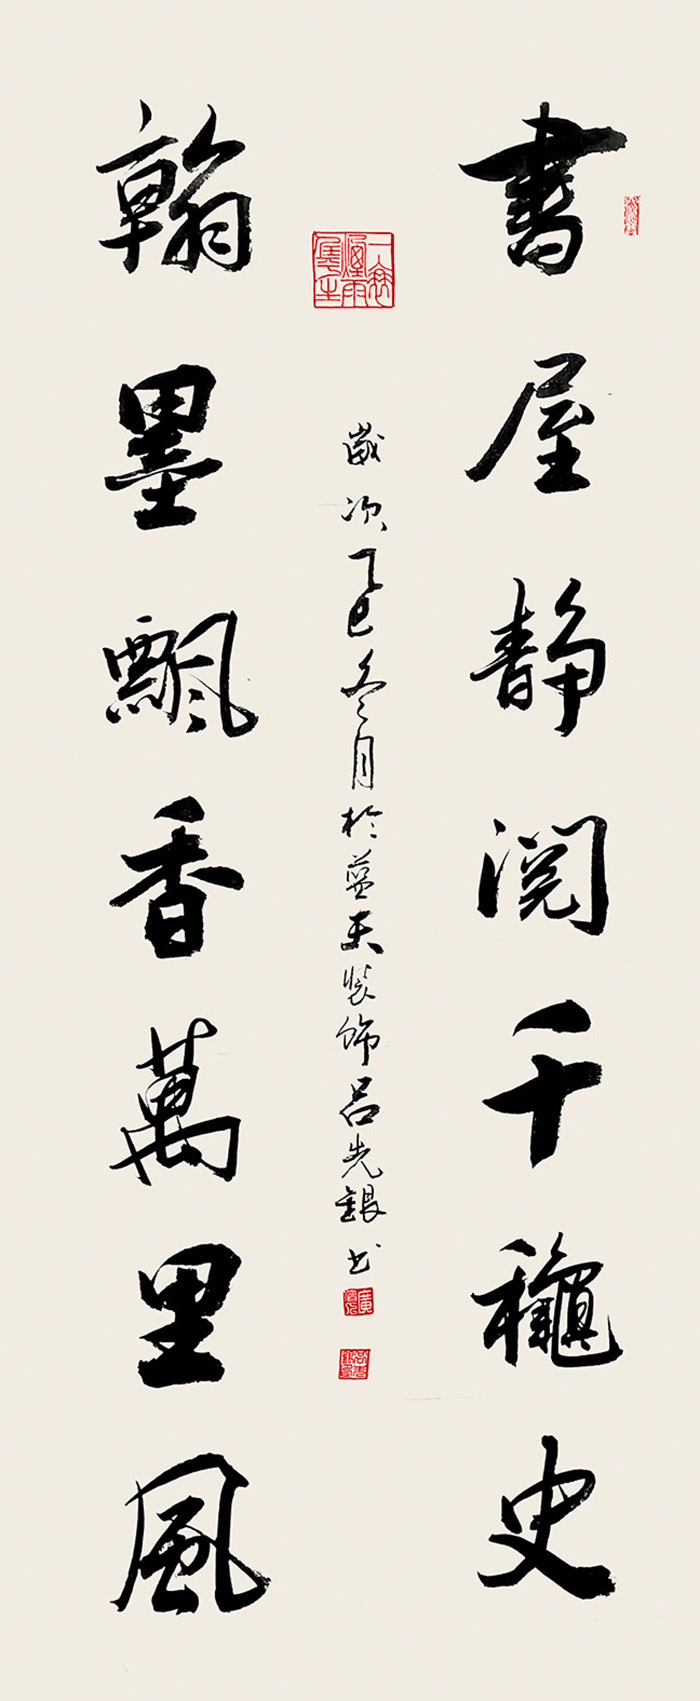 書屋静閱千龝史
翰墨飄香萬里風
歲次乙巳冬月於藍天裝飾呂先銀书